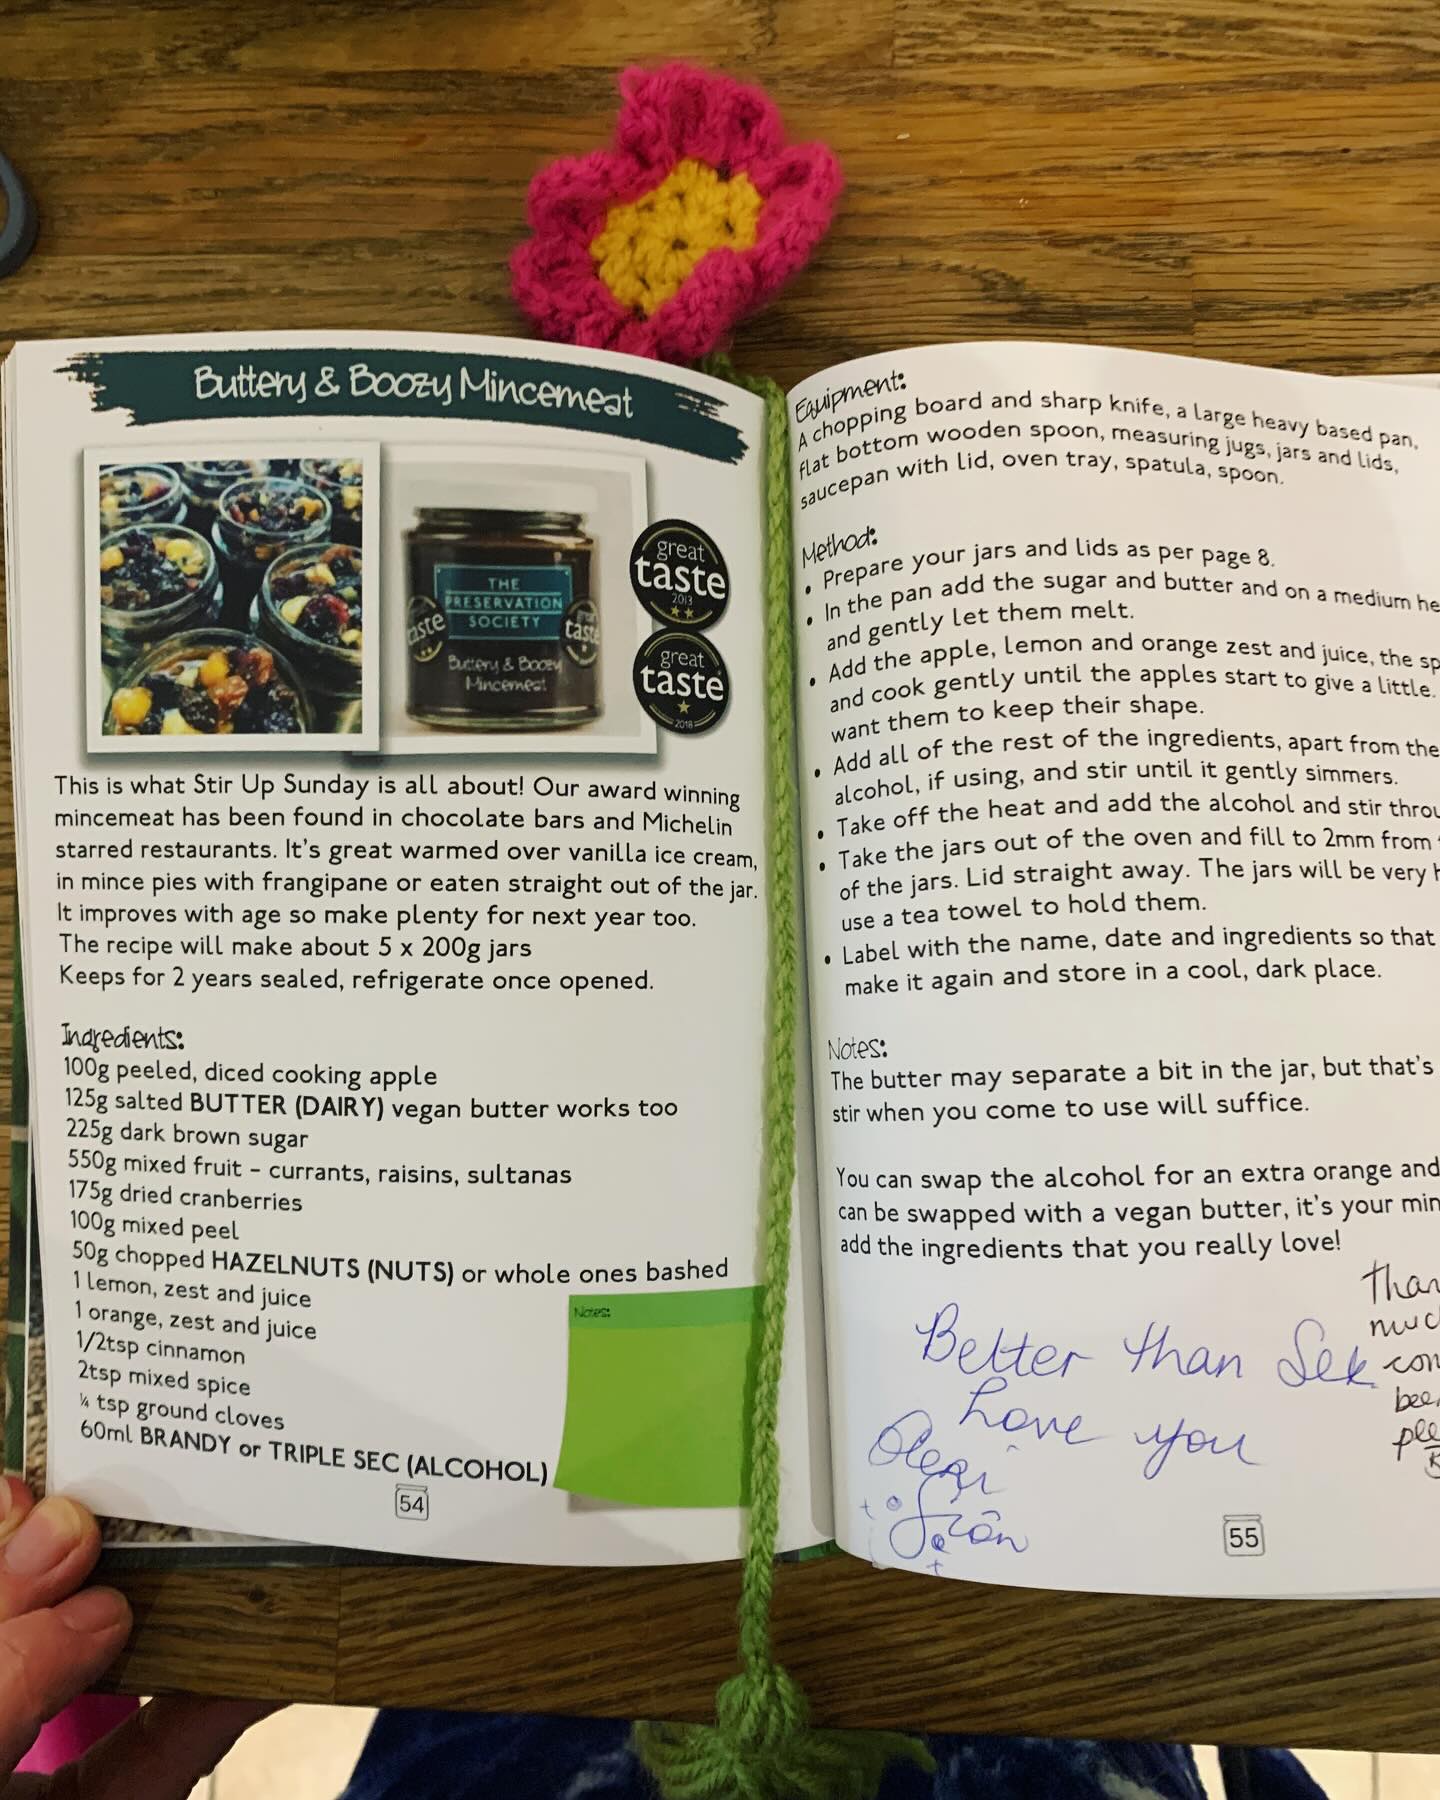 Buttery & Boozy Mincemeat
great
taste
2013
great
taste
2018
THE
PRESERVATION
SOCIETY
taste
taste
Buttery & Boozy
Mincemeat
This is what Stir Up Sunday is all about! Our award winning
mincemeat has been found in chocolate bars and Michelin
starred restaurants. It's great warmed over vanilla ice cream,
in mince pies with frangipane or eaten straight out of the jar.
It improves with age so make plenty for next year too.
The recipe will make about 5 x 200g jars
Keeps for 2 years sealed, refrigerate once opened.
Ingredients:
100g peeled, diced cooking apple
125g salted BUTTER (DAIRY) vegan butter works too
225g dark brown sugar
550g mixed fruit - currants, raisins, sultanas
175g dried cranberries
100g mixed peel
50g chopped HAZELNUTS (NUTS) or whole ones bashed
1 lemon, zest and juice
1 orange, zest and juice
1/2tsp cinnamon
2tsp mixed spice
¼ tsp ground cloves
60ml BRANDY or TRIPLE SEC (ALCOHOL)
Notes:
54
Equipment:
A chopping board and sharp knife, a large heavy based pan,
flat bottom wooden spoon, measuring jugs, jars and lids,
saucepan with lid, oven tray, spatula, spoon.
Method:
• Prepare your jars and lids as per page 8.
• In the pan add the sugar and butter and on a medium he
and gently let them melt.
• Add the apple, lemon and orange zest and juice, the sp
and cook gently until the apples start to give a little.
want them to keep their shape.
• Add all of the rest of the ingredients, apart from the
alcohol, if using, and stir until it gently simmers.
• Take off the heat and add the alcohol and stir throu
• Take the jars out of the oven and fill to 2mm from
of the jars. Lid straight away. The jars will be very h
use a tea towel to hold them.
• Label with the name, date and ingredients so that
make it again and store in a cool, dark place.
Notes:
The butter may separate a bit in the jar, but that's
stir when you come to use will suffice.
You can swap the alcohol for an extra orange and
can be swapped with a vegan butter, it's your min
add the ingredients that you really love!
Better than Sex
Love you
than
muc
con
bee
ple
55